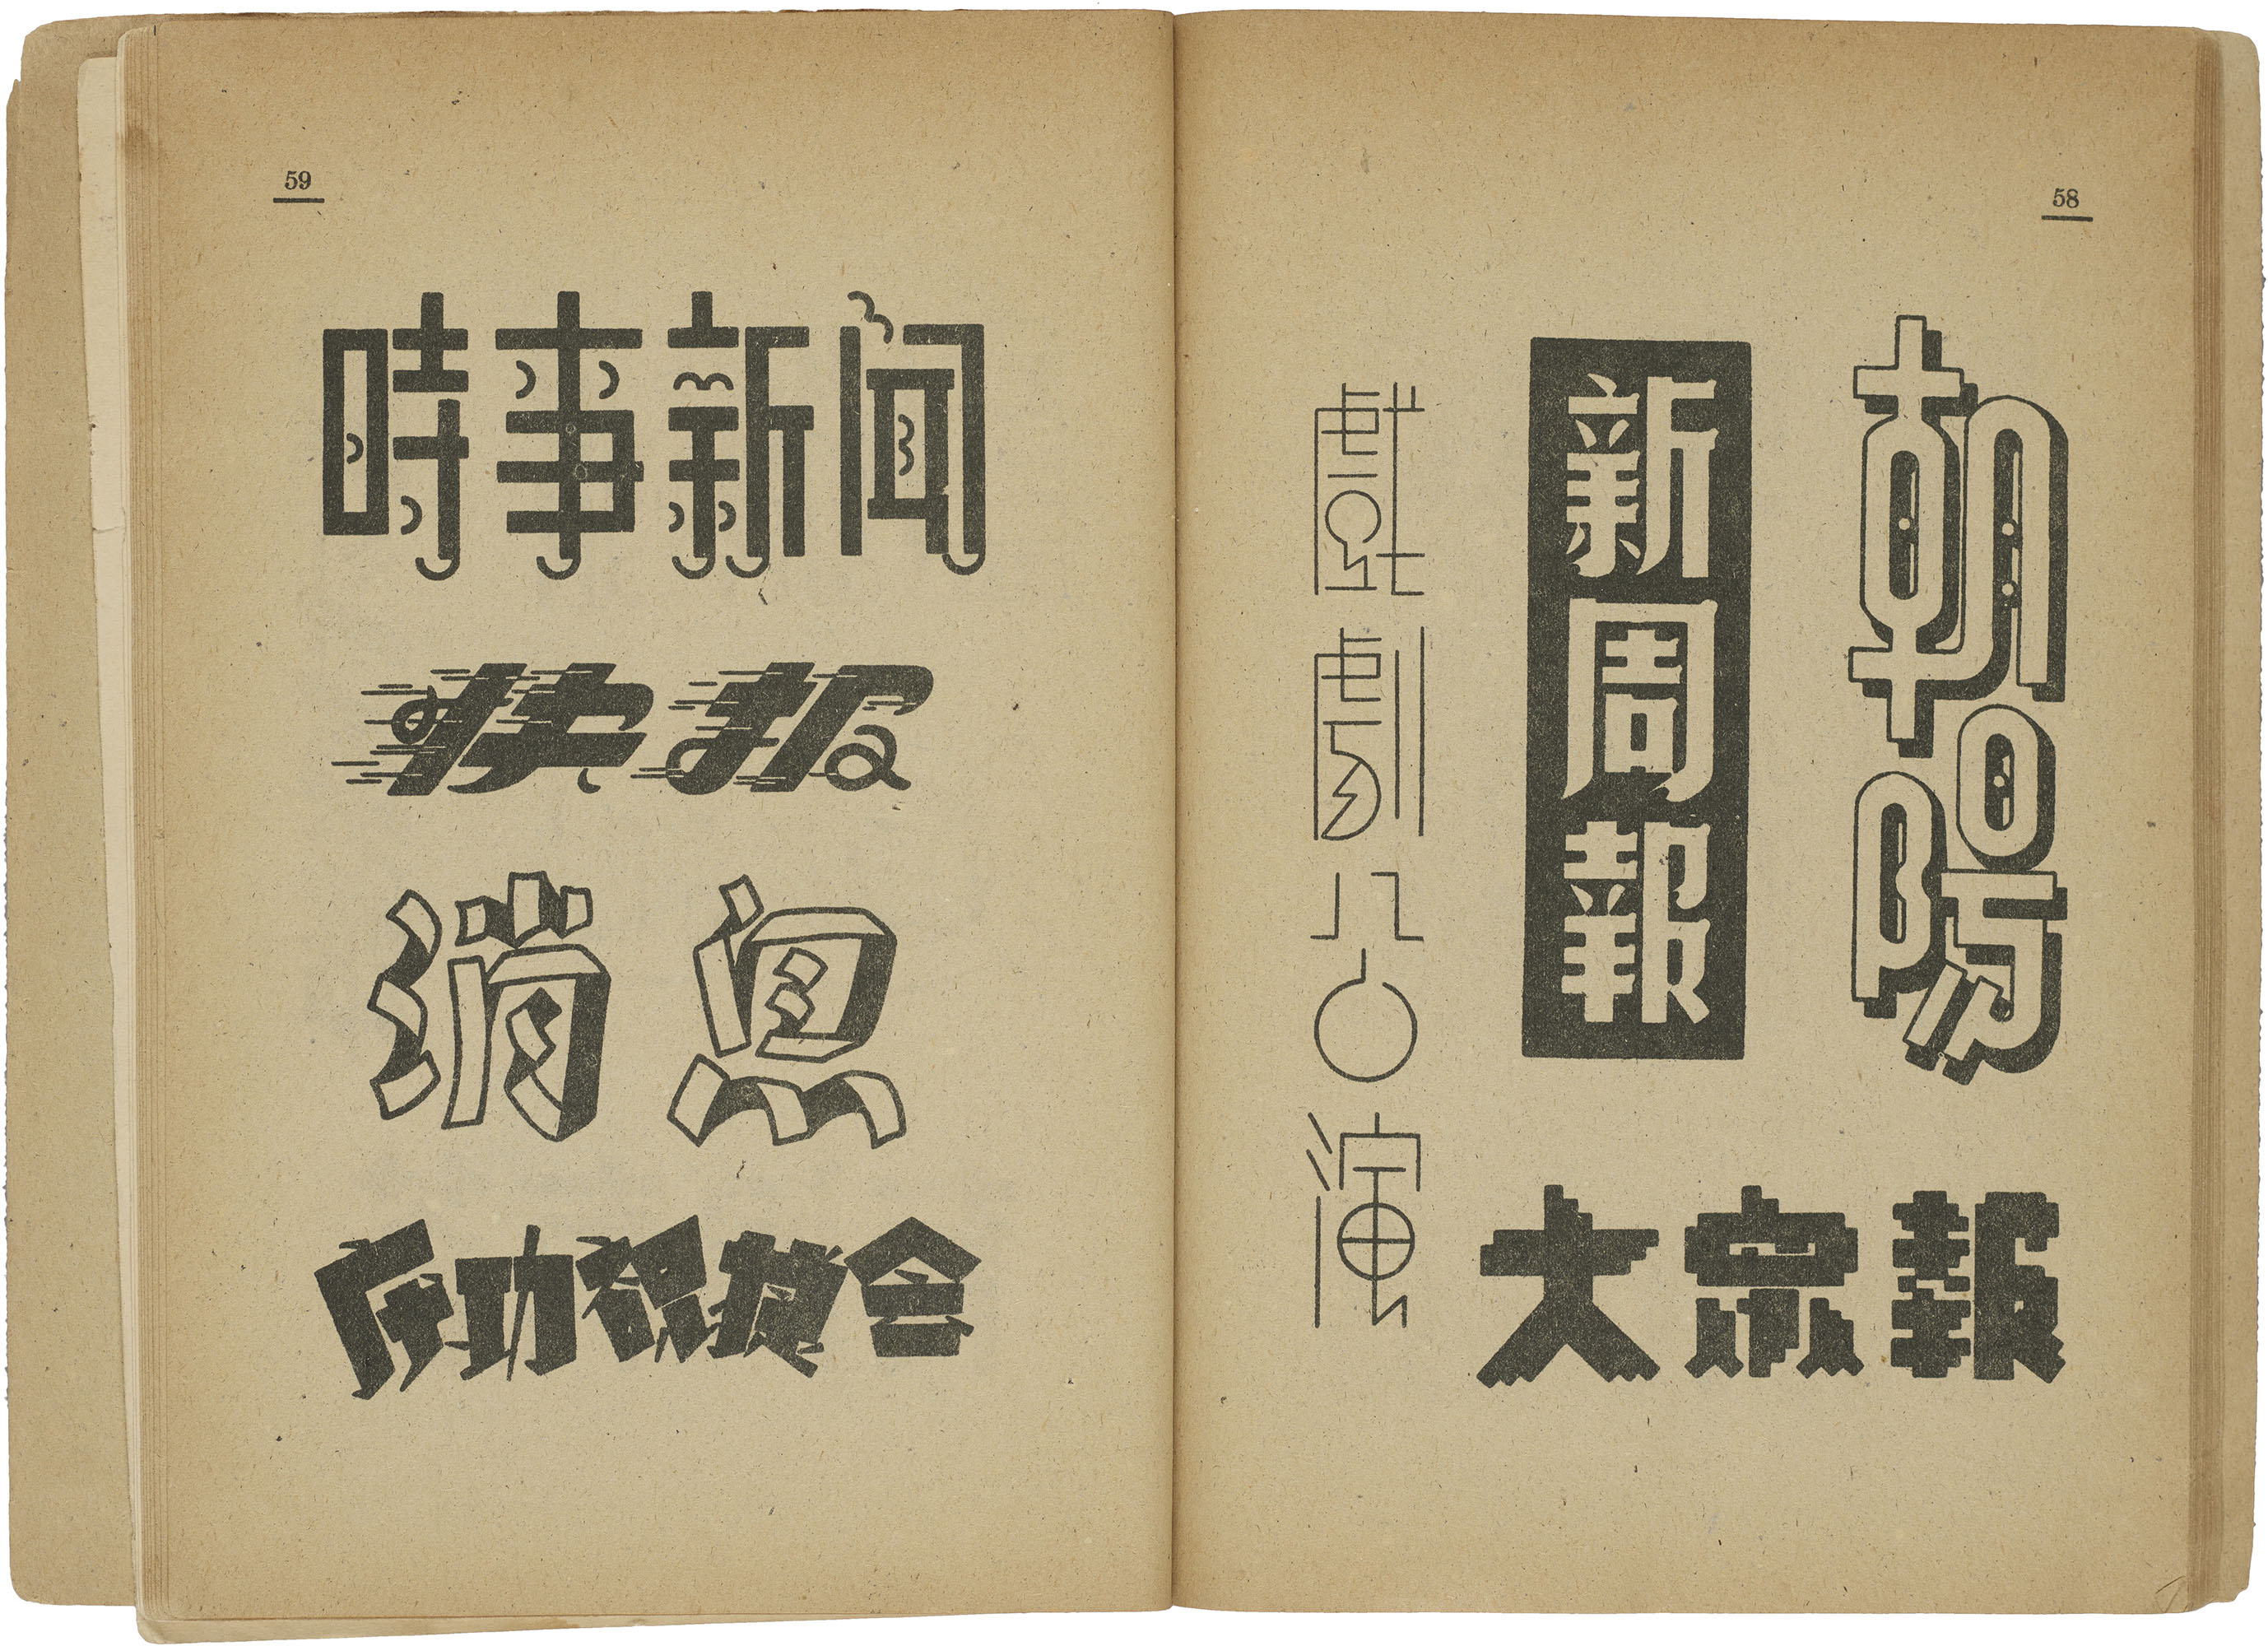 58
朝陽
新周報
戲劇公演
大衆報
59
時事新闻
快报
消息
功会